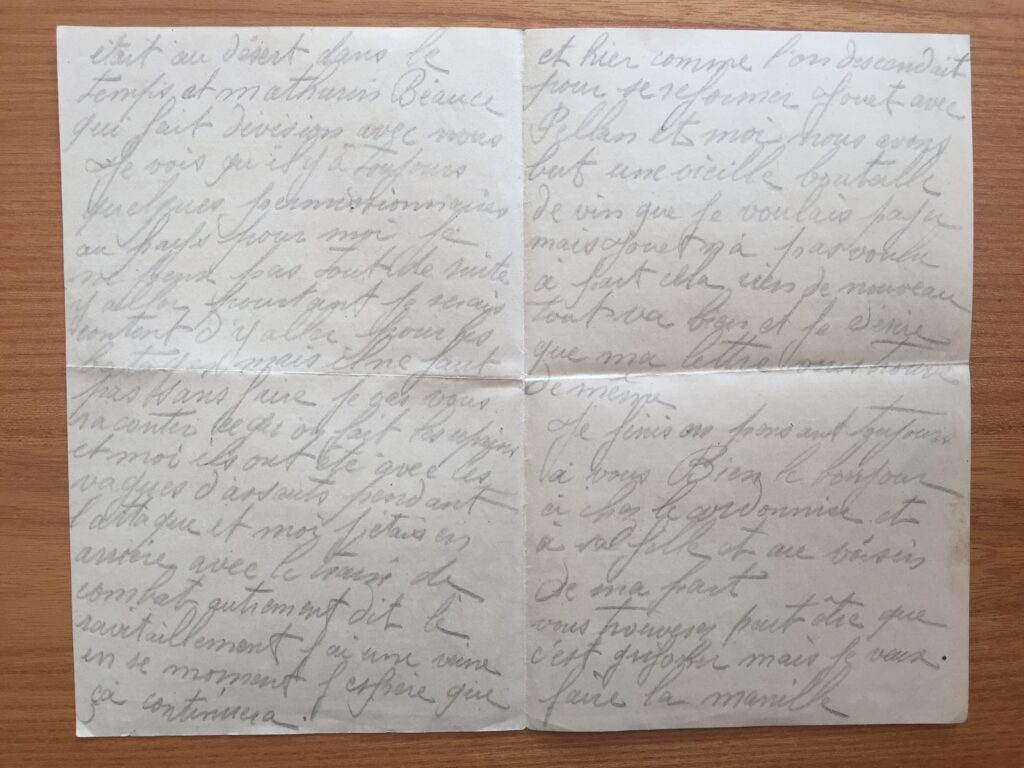 était au désert dans le
temps et mathurin Béauce
qui fait division avec nous
Je vois qu'il y à toujours
quelques permissionnaires
au pays pour moi je
ne peux pas tout de suite
y aller pourtant je serais
content d'y aller pour les
mais il ne faut
pas sans faire je vais vous
raconter ce qu'on fait les copains
et moi ils ont été avec les
vagues d'assauts pendant
l'attaque et moi j'étais en
arrière avec le train de
combat autrement dit le
ravitaillement j'ai une veine
en se moment j'espère que
çà continuera.
et hier comme l'on descendait
pour se reformer Jouet avec
Pellan et moi nous avons
but une vieille bouteille
de vin que je voulais payer
mais Jouet n'a pas voulu
à part cela rien de nouveau
tout va bien et je désire
que ma lettre vous trouve
de même
Je finis en pensant toujours
à vous Bien le bonjour
à chez le cordonnier et
à sa fille et au voisin
de ma part
vous trouverez peut être que
c'est grifonner mais je veux
faire la manille